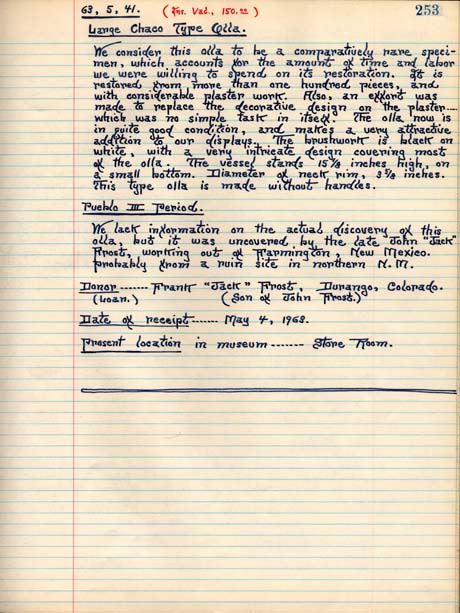 63, 5, 41. (Ins. Val., 150.00) 253
Large Chaco Type Olla.
We consider this olla to be a comparatively rare speci-
men, which accounts for the amount of time and labor
we were willing to spend on its restoration. It is
restored from more than one hundred pieces, and
with considerable plaster work. Also, an effort was
made to replace the decorative design on the plaster....
which was no simple task in itself. The olla now is
in quite good condition, and makes a very attractive
addition to our displays. The brushwork is black on
white, with a very intricate design covering most
of the olla. The vessel stands 15⅞ inches high, on
a small bottom. Diameter of neck rim, inches.
This type olla is made without handles.
Pueblo III Period.
We lack information on the actual discovery of this
olla, but it was uncovered by the late John "Jack"
Frost, working out of Farmington, New Mexico.
probably from a ruin site in northern N.M.
Donor ------ Frank "Jack" Frost, Durango, Colorado.
(Loan.) (Son of John Frost.)
Date of receipt ------ May 4, 1963.
Present location in museum ------- Store Room.